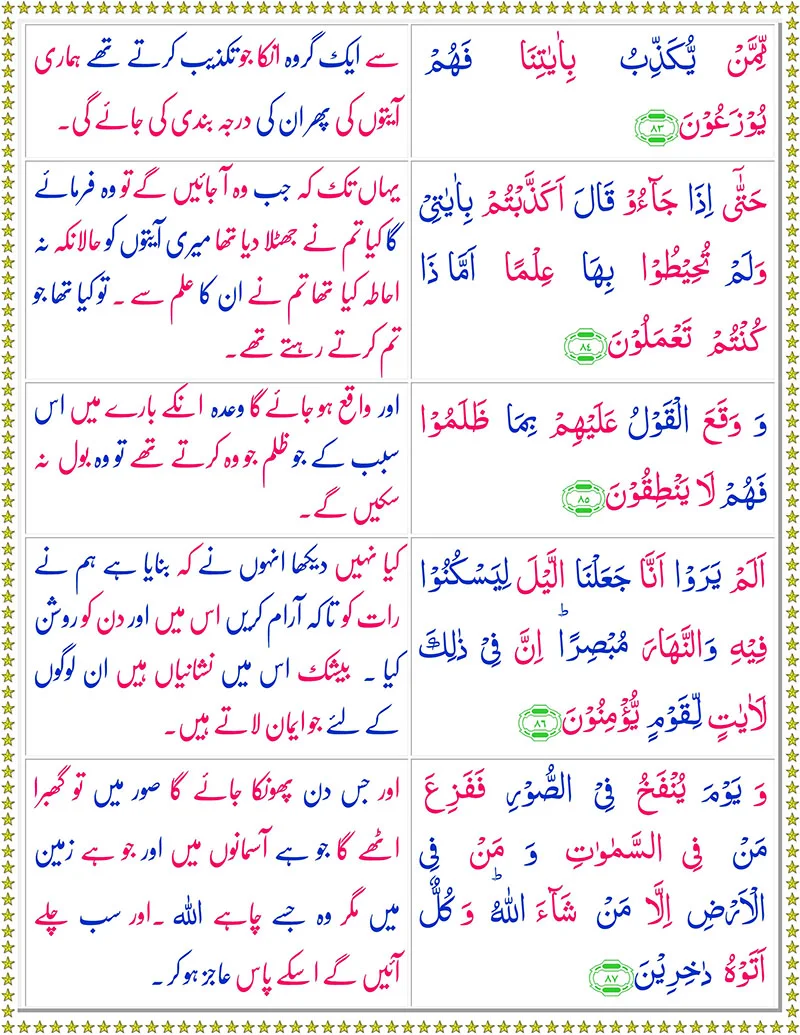 مِّمَّنْ يُّكَذِّبُ بِاٰيٰتِنَا فَهُمْ
يُوْزَعُوْنَ ۸۳
سے ایک گروہ انکا جو تکذیب کرتے تھے ہماری
آیتوں کی پھر ان کی درجہ بندی کی جائے گی۔
حَتّٰۤى اِذَا جَآءُوْ قَالَ اَكَذَّبْتُمْ بِاٰيٰتِىْ
وَلَمْ تُحِيْطُوْا بِهَا عِلْمًا اَمَّا ذَا
كُنْتُمْ تَعْمَلُوْنَ ۸۴
یہاں تک کہ جب وہ آ جائیں گے تو وہ فرمائے
گا کیا تم نے جھٹلا دیا تھا میری آیتوں کو حالانکہ نہ
احاطہ کیا تھا تم نے ان کا علم سے ۔ تو کیا تھا جو
تم کرتے رہتے تھے۔
وَ وَقَعَ الْقَوْلُ عَلَيْهِمْ بِمَا ظَلَمُوْا
فَهُمْ لَا يَنْطِقُوْنَ ۸۵
اور واقع ہو جائے گا وعدہ انکے بارے میں اس
سبب کے جو ظلم جو وہ کرتے تھے تو وہ بول نہ
سکیں گے۔
اَلَمْ يَرَوْا اَنَّا جَعَلْنَا الَّيْلَ لِيَسْكُنُوْا
فِيْهِ وَالنَّهَارَ مُبْصِرًا ؕ اِنَّ فِىْ ذٰلِكَ
لَاٰيٰتٍ لِّقَوْمٍ يُّؤْمِنُوْنَ ۸۶
کیا نہیں دیکھا انہوں نے کہ بنایا ہے ہم نے
رات کو تا کہ آرام کریں اس میں اور دن کو روشن
کیا ۔ بیشک اس میں نشانیاں ہیں ان لوگوں
کے لئے جو ایمان لاتے ہیں۔
وَ يَوْمَ يُنْفَخُ فِى الصُّوْرِ فَفَزِعَ
مَنْ فِى السَّمٰوٰتِ وَ مَنْ فِى
الْاَرْضِ اِلَّا مَنْ شَآءَ اللّٰهُ ؕ وَ كُلٌّ
اَتَوْهُ دٰخِرِيْنَ ۸۷
اور جس دن پھونکا جائے گا صور میں تو گھبرا
اٹھے گا جو ہے آسمانوں میں اور جو ہے زمین
میں مگر وہ جسے چاہے اللہ ۔ اور سب چلے
آئیں گے اسکے پاس عاجز ہو کر ۔